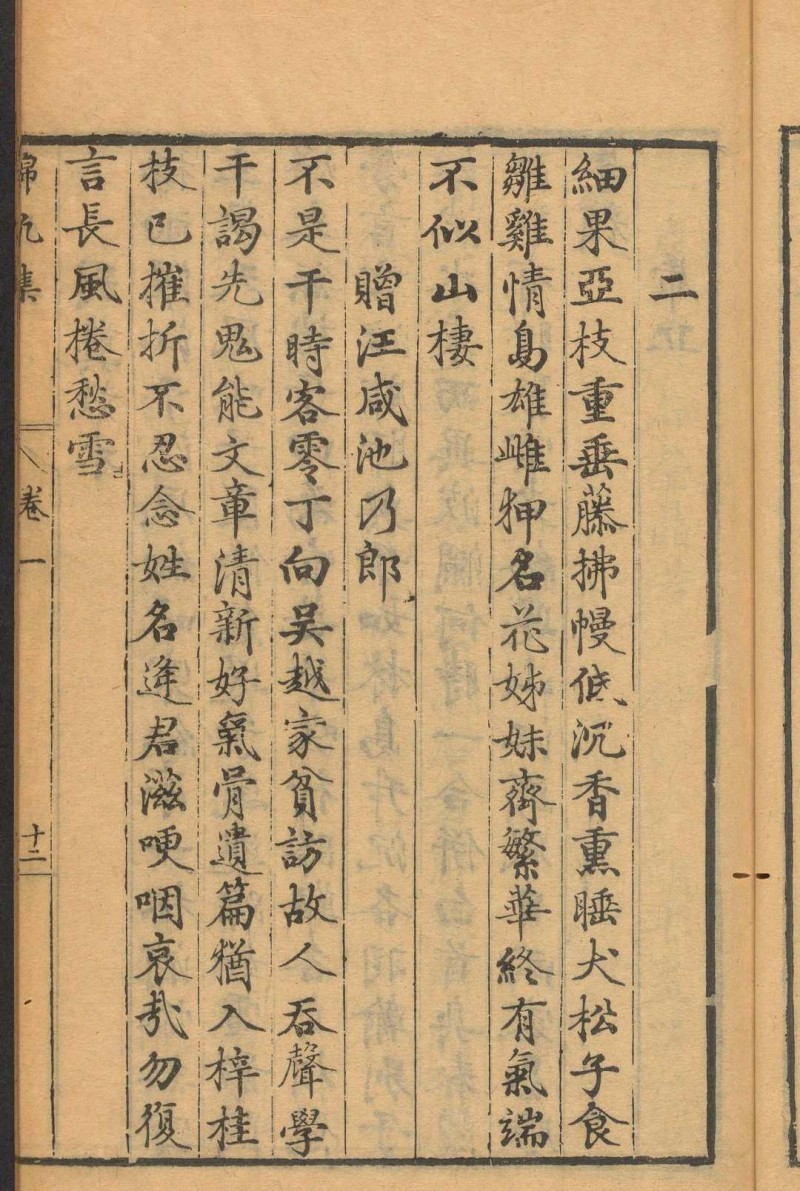 二
細果亞枝重垂藤拂幔低沉香熏睡犬松子食
雛雞情鳥雄雌狎名花姊妹齊繁華終有氣端
不似山棲
贈汪咸池乃郎
不是干時客零丁向吳越家貧訪故人吞聲學
干謁先鬼能文章清新好氣骨遺篇猶入梓桂
枝已摧折不忍念姓名逢君滋哽咽哀哉勿復
言長風捲愁雪
集 卷一 十二